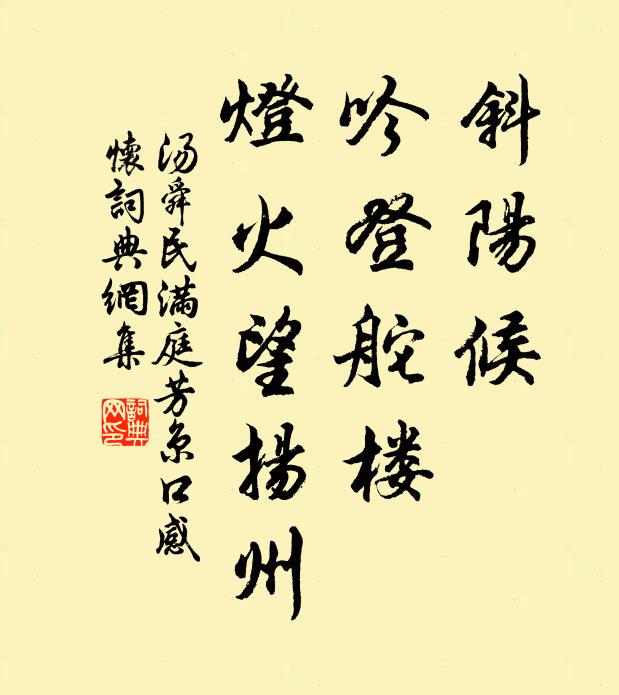 斜陽候
吟登舵楼
燈火望揚州
汤舜民满庭芳京口感
懷詞典網集
詞典網印